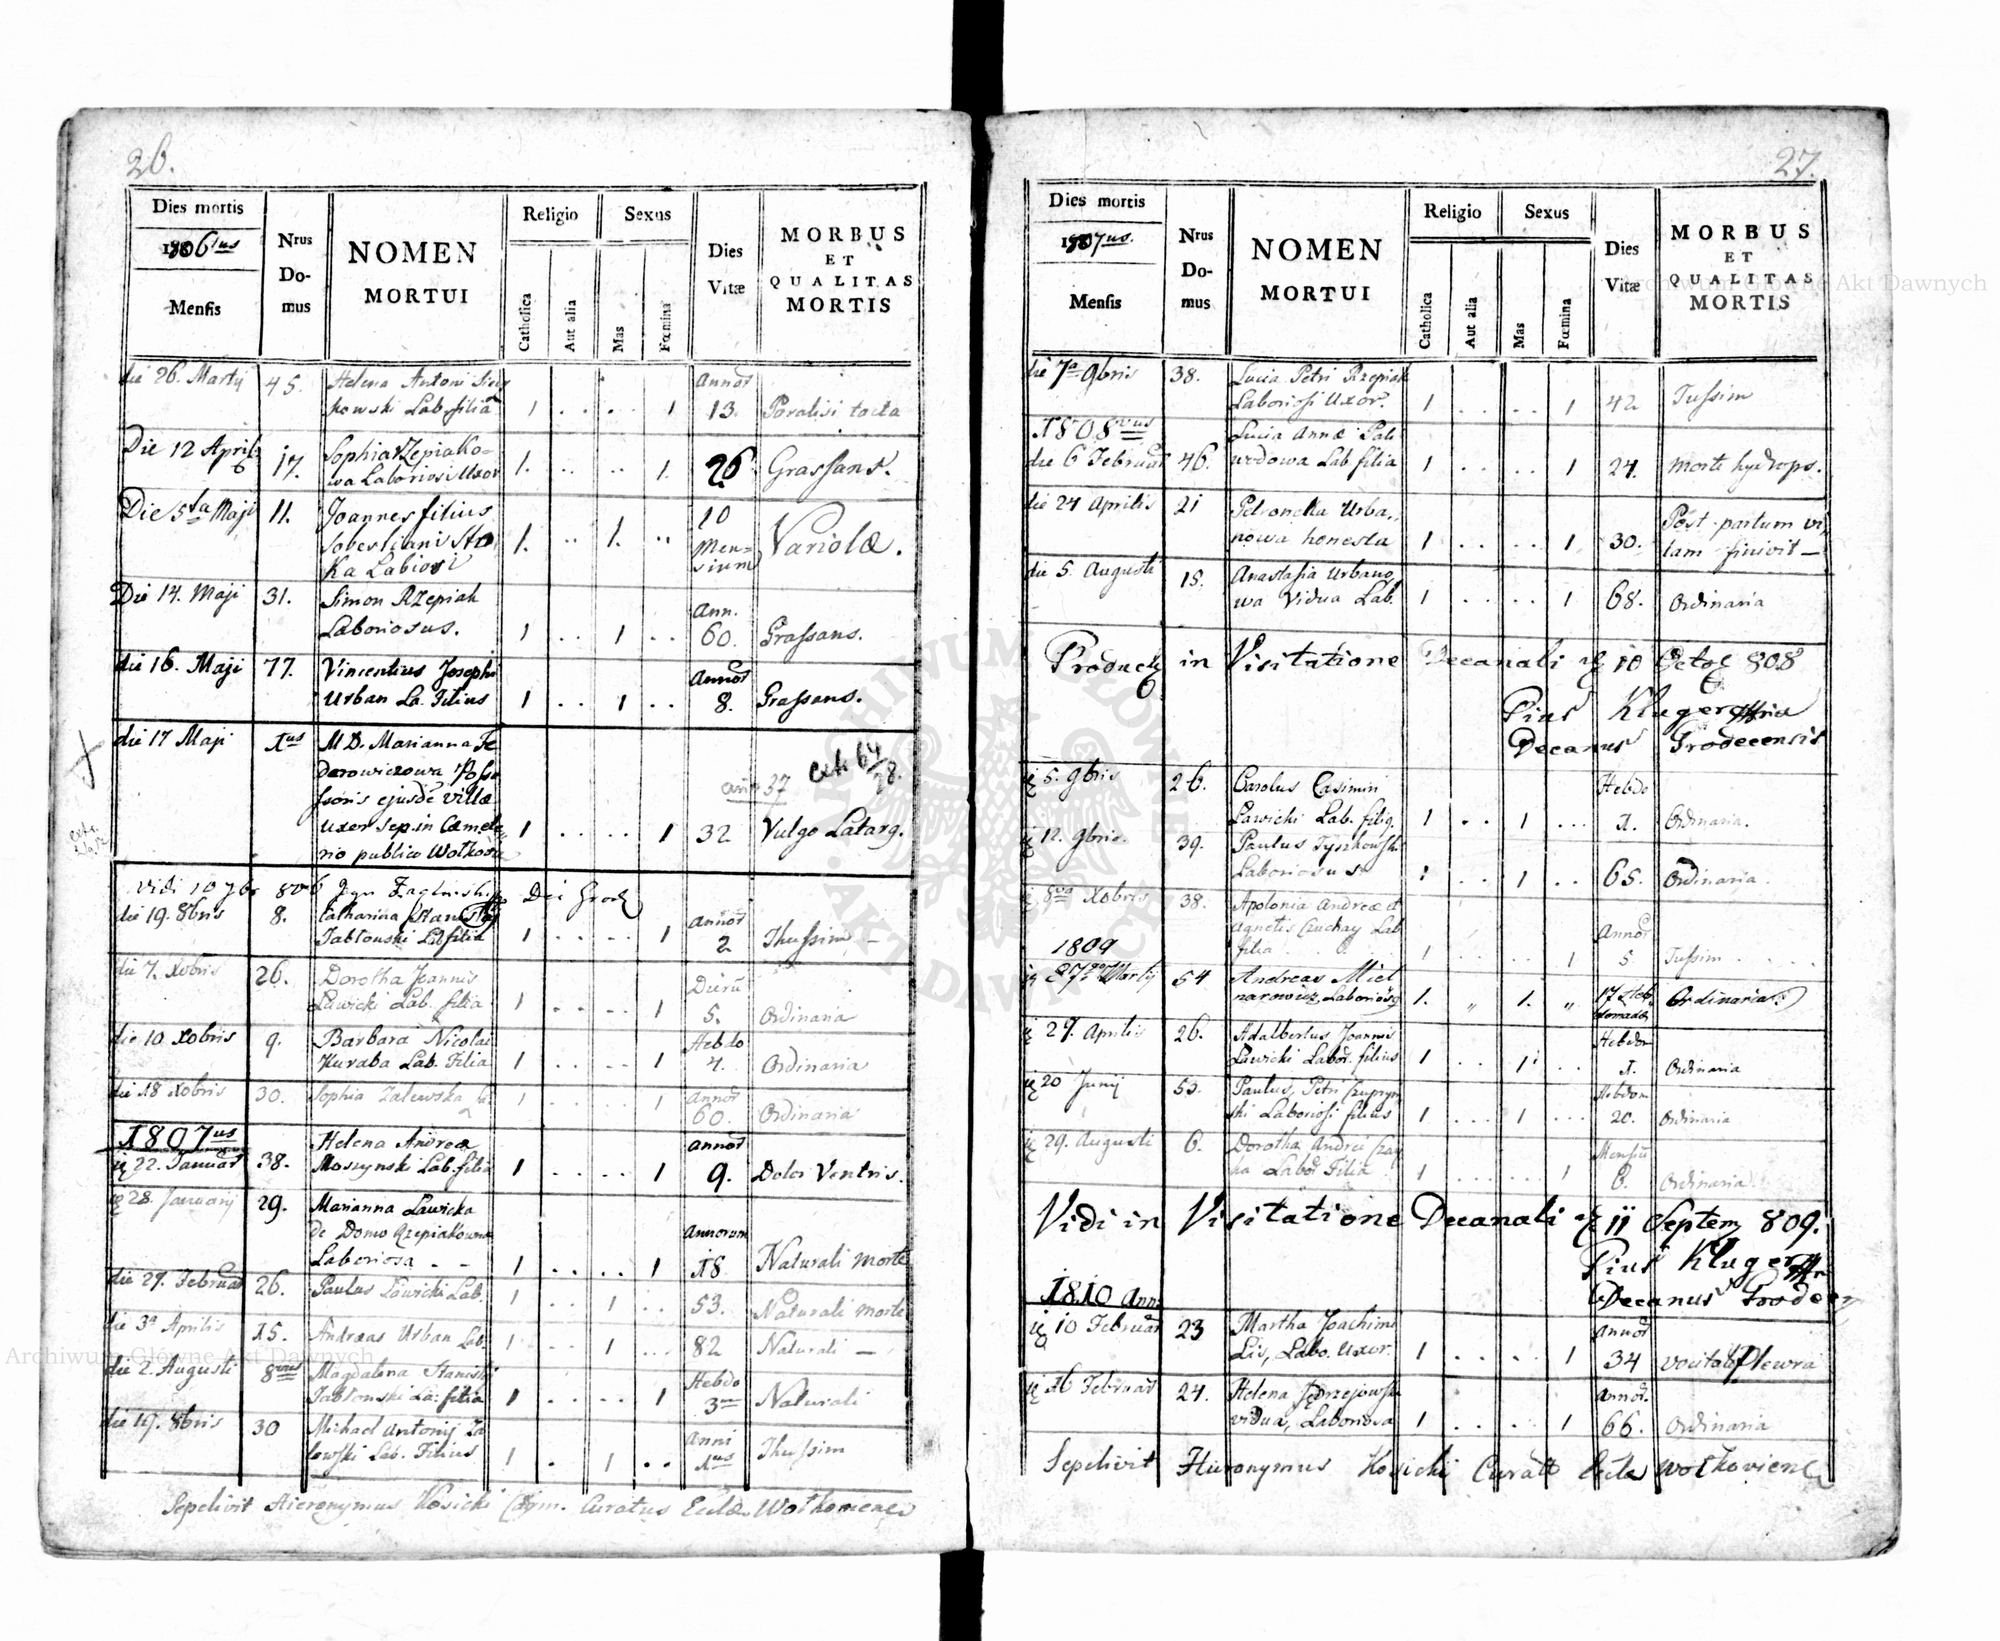 26.
Dies mortis
1806tus
Mensis
Nrus Domus
NOMEN MORTUI
Religio
Catholica
Aut alia
Sexus
Mas
Fœmina
Dies Vitæ
MORBUS ET QUALITAS MORTIS
die 26. Martij 45. Helena Antoni Annor
kowski Lab. filia 1 . . . . 1 13. Paralisi tacta
Die 12 Aprilis 17. Sophia Rzepiako=
wa Laboriosi Uxor 1. .. .. 1. 26 Grassans.
Die 5ta Maji 11. Joannes filius 10
Sobestiani Men=
ka Labiosi 1. .. 1. .. sium Variolæ.
Die 14. Maji 31. Simon Rzepiak Ann.
Laboriosus. 1 . . 1 . . 60. Grassans.
die 16. Maji 77. Vincentius Josephi Annor
Urban La. Filius 1 . . 1 . . 8. Grassans.
die 17 Maji 1us M.D. Marianna Fe
derowiczowa Posse
ssoris ejusde villæ 37
uxor sep. in Cæmete
rio publico Wołkow 1 . . . . 1 32 Vulgo Letarg.
Vidi 10 7br 806
die 19. 8bris 8. Catharina Stanislai Annor
Jabłonski Lab filia 1 . . . . 1 2 Thussim –
die 7. Xobris 26. Dorotha Joannis Dierũ
Ławicki Lab. filia 1 . . . . 1 5. Ordinaria
die 10 Xobris 9. Barbara Nicolai Hebdo
Kuraba Lab. Filia 1 . . . . 1 4. Ordinaria
die 18 Xobris 30. Sophia Zalewska Annor
1 . . . . 1 60. Ordinaria
1807us Helena Andreæ Annor
22. Januar 38. Moszynski Lab. filia 1 . . . . 1 9. Dolor Ventris.
28. Januarij 29. Marianna Ławicka
de Domo Rzepiakowna Annorum
Laboriosa - - 1 . . . . 1 18 Naturali morte
die 27. Februar 26. Paulus Ławicki Lab. 1 . . 1 . . 53. Naturali morte
die 3a Aprilis 15. Andreas Urban Lab. 1 . . 1 . . 82 Naturali –
die 2. Augusti 8vus Magdalena Stanislai Hebdo
Jabłonski La. filia 1 . . . . 1 3 Naturali
die 19. 8bris 30 Michael Antonij Za Anni
lewski Lab. Filius 1 . 1 . . 1us Thussim
Sepelivit Hieronymus Kosicki Curatus Eccl
27.
Dies mortis
1807us.
Mensis
Nrus Domus
NOMEN MORTUI
Religio
Catholica
Aut alia
Sexus
Mas
Fœmina
Dies Vitæ
MORBUS ET QUALITAS MORTIS
die 7a 9bris 38. Lucia Petri Rzepiak
Laboriosi Uxor. 1 . . . . 1 42 Tussim
1808vus Lucia Annæ Pali
die 6 Februar 46. wodowa Lab filia 1 . . . . 1 24. morte hydrops.
die 24 Aprilis 21 Petronella Urba Post partum vi
nowa honesta 1 . . . . 1 30. tam finivit –
die 5. Augusti 15. Anastasia Urbano
wa Vidua Lab. 1 . . . . 1 68. Ordinaria
in Visitatione Decanali 10 808
Pius Kluger
Decanus Grodecensis
5. 9bris 26. Carolus Casimiri Hebdo
Ławicki Lab. filig. 1 . . 1 . . . 1. Ordinaria.
12. 9bris. 39. Paulus Tyszkowski
Laboriosus 1 . . 1 . . 65. Ordinaria.
8va Xobris 38. Apolonia Andreæ et
Agnetis Czuchay Lab Annor
filia 1 . . . . 1 5 Tussim
1809
Martij 54 Andreas Miel 17
narowicz, Labor 1. „ 1. „ Ordinaria
27. Aprilis 26. Adalbertus Joannis Hebdom
Ławicki Labor. filius 1 . . 1 . . . 1. Ordinaria
20 Junij 53. Paulus, Petri Hebdom
ski Laboriosi filius 1 . . . 1 . . . 20. Ordinaria
29. Augusti 6. Dorotha Andrei Mensiũ
ka Labor Filia 1 . . . . 1 6. Ordinaria
Vidi in Visitatione Decanali 11 Septem 809.
Pius Kluger
Decanus
1810 Ann:
10 Februar 23 Martha Joachimi Annor
Lis, Labo. Uxor. 1 . . . . 1 34 Plewra
16 Februar 24. Helena Jędrzejowska Annor.
vidua, Laboriosa 1 . . . . 1 66. Ordinaria
Sepelivit Hieronymus Kosicki Curatt
Archiwum Główne Akt Dawnych